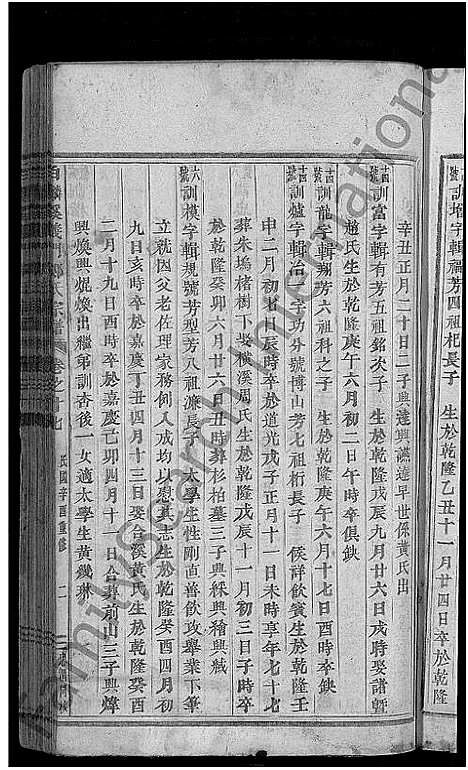 號訓增字輯福芳四祖杞長子 生於乾隆乙丑十一月廿四日卒於乾隆
辛丑正月二十日二子興達興謨達早世係黃氏出
十四號訓富字輯有芳五祖銘次子 生於乾隆戊辰九月廿六日戌時娶諸暨
趙氏生於乾隆庚午六月初二日午時卒俱缺
十四號訓龍字輯翔芳六祖科之子 生於乾隆庚午六月十七日酉時卒缺
十四號訓爐字輯冶一字功分號博山芳七祖桁長子 候詳飲賓生於乾隆壬
申二月初七日辰時卒於道光戊子正月十一日未時享年七十七
葬朱塢楮樹下娶橫溪周氏生於乾隆戊辰十一月初三日子時卒
於乾隆癸卯六月廿六日丑時葬杉柏墓三子興綵興繪興絨
六號訓模字輯規號芳型芳八祖濂長子 太學生性剛直善飲攻舉業下筆
立就因父老佐理家務倒人成均以慰其志生於乾隆癸酉四月初
九日亥時卒於嘉慶丁丑四月十三日娶合溪黃氏生於乾隆癸酉
二月十九日酉時卒於嘉慶己卯四月十一日合葬前山三子興煒
興煥興焜煥出繼弟訓杏後一女適太學生黃幾琳
白麟溪義門鄭氏宗譜 卷之十七 民國辛酉重修 二
FamilySearch International